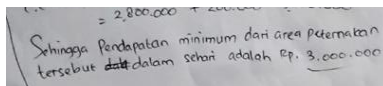 = 2.800.000 +
Sehingga Pendapatan minimum dari area Peternakan
tersebut dalam sehari adalah Rp. 3.000.000